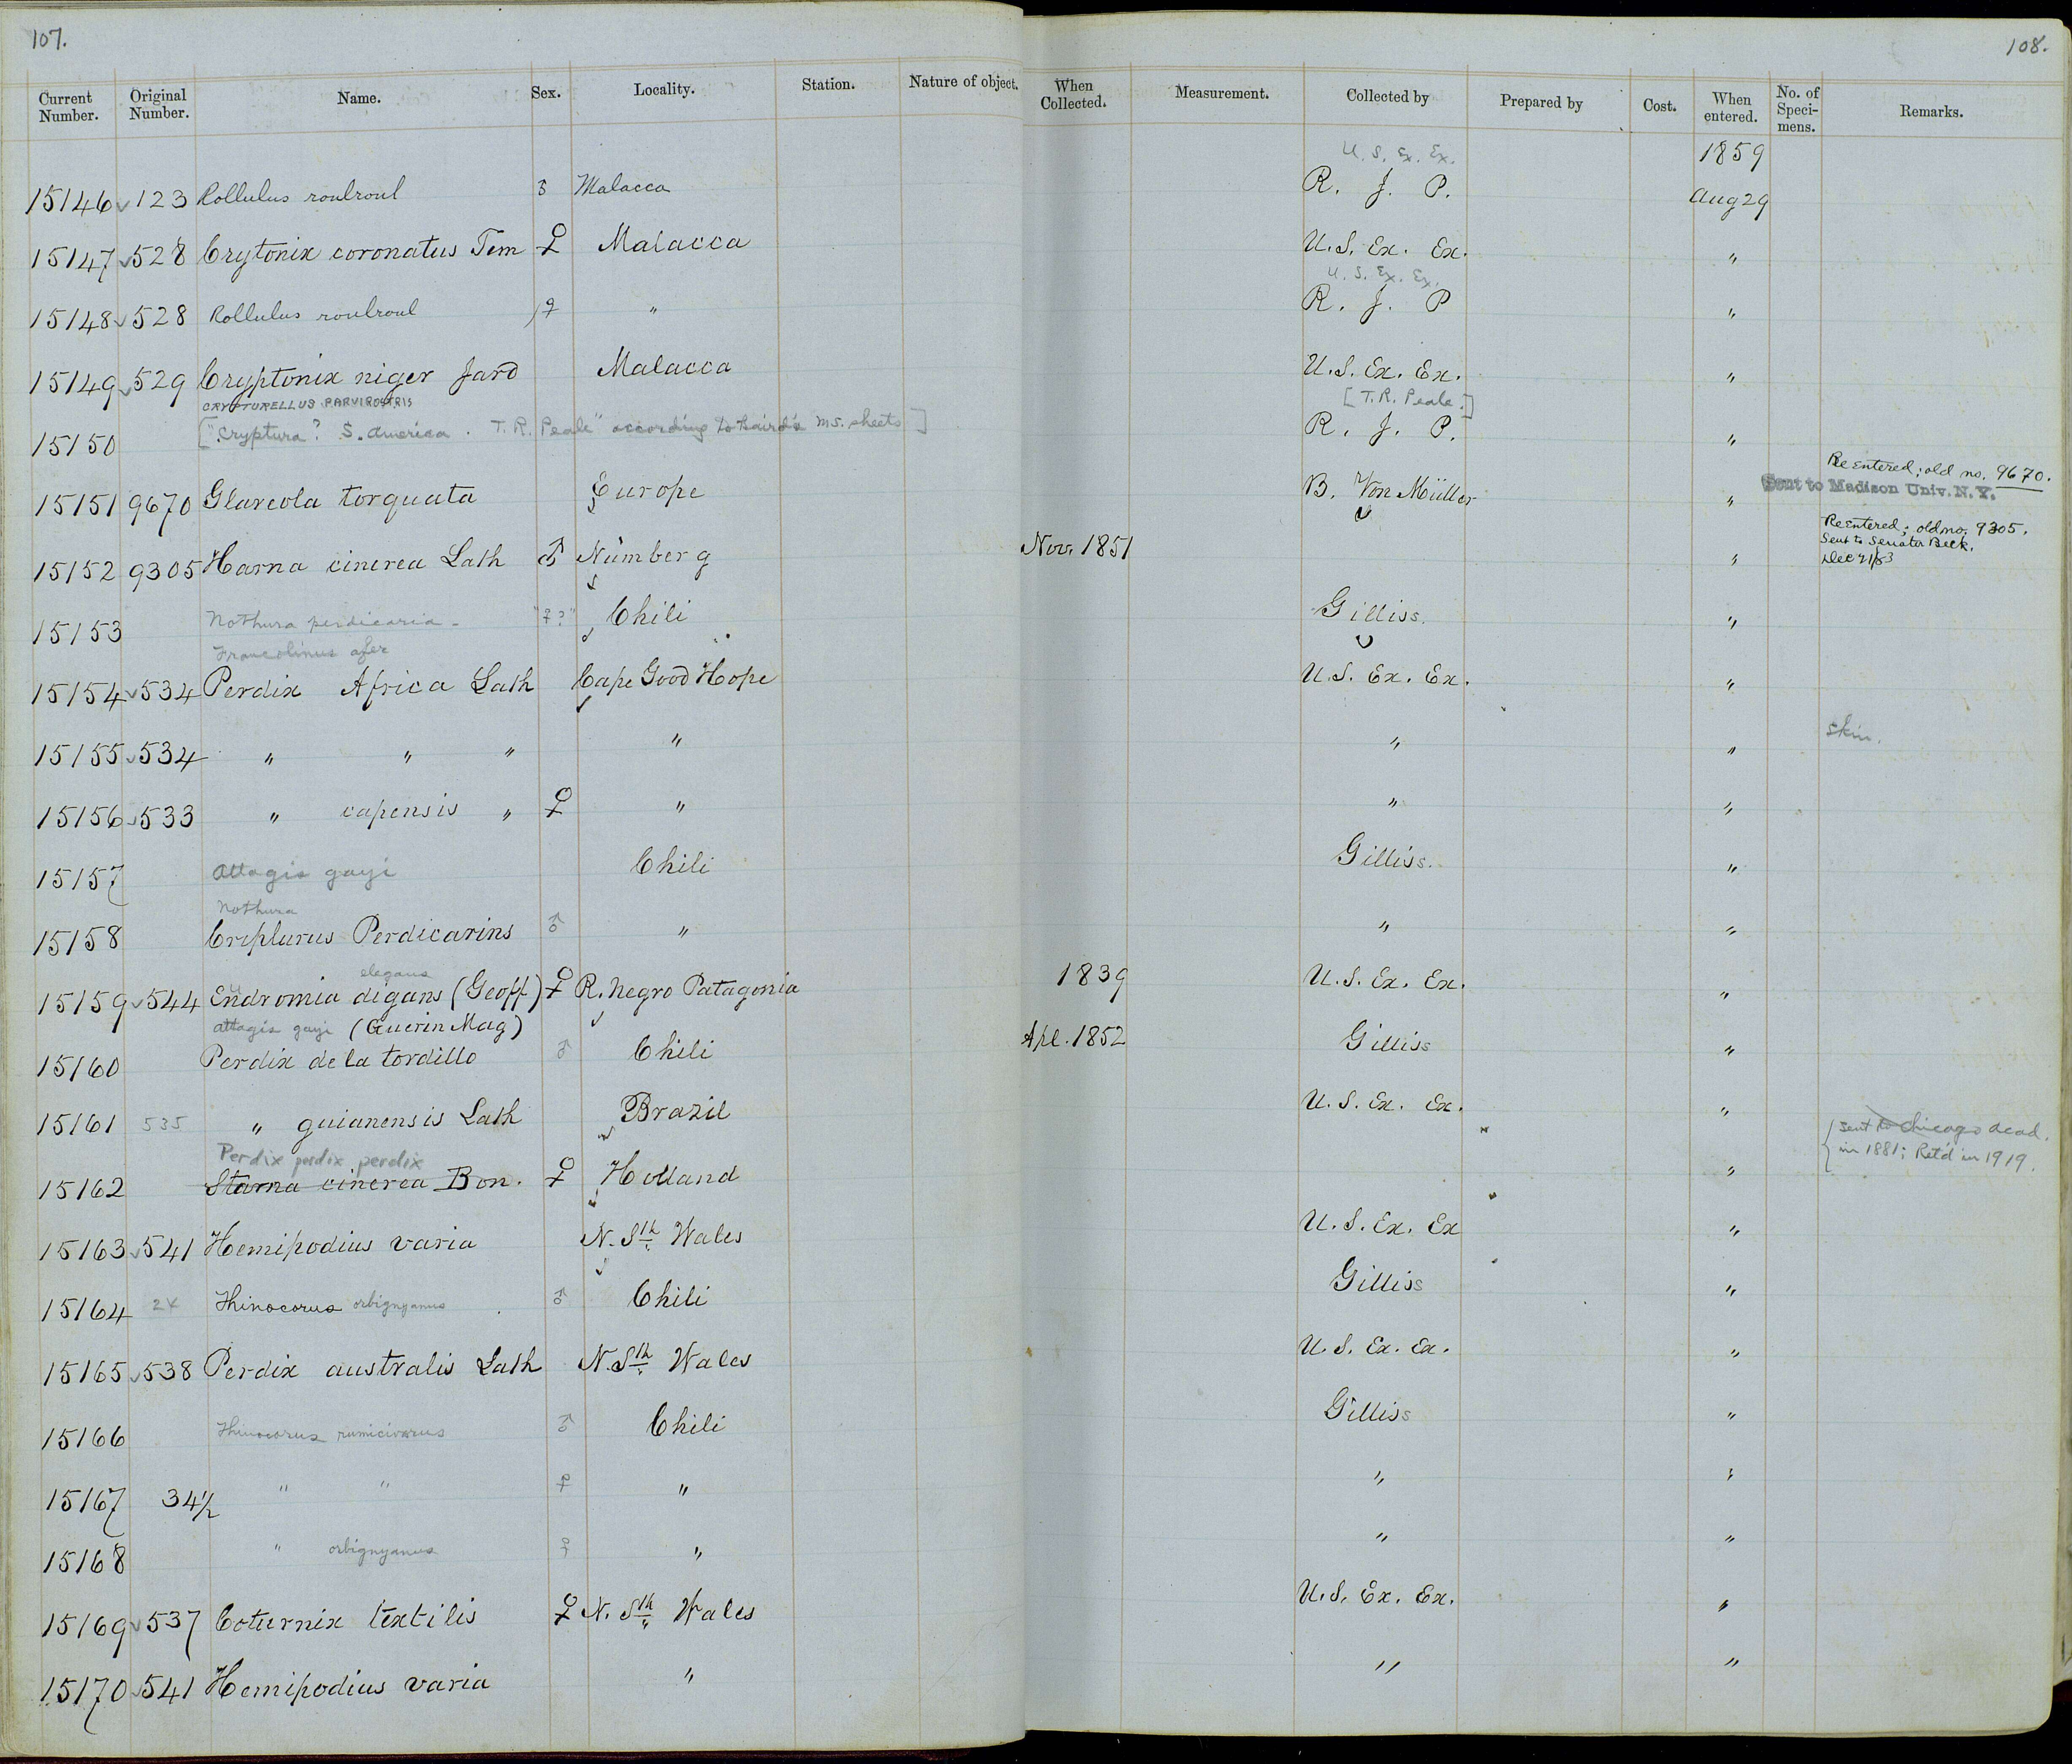 107.
108.
Current Number. Original Number. Name. Sex. Locality. Station. Nature of object. When Collected. Measurement. Collected by Prepared by Cost. When entered. No. of Speci-mens. Remarks.
U. S. Ex. Ex. 1859
15146 123 Rollulus roulroul ♂ Malacca R. J. P. Aug 29
15147 528 Crytonix coronatus Tem ♀ Malacca U.S. Ex. Ex. "
U. S. Ex. Ex.
15148 528 Rollulus roulroul ♀ " R. J. P "
15149 529 Cryptonix niger Jard Malacca U.S. Ex. Ex. "
CRYPTURELLUS PARVIROSTRIS [T.R. Peale.]
15150 ["Cryptura? S. America. T. R. Peale" according to Baird's MS. sheets] R. J. P. "
Reentered; old no. 9670.
15151 9670 Glareola torquata Europe B. Von Müller " Sent to Madison Univ. N.Y.
Reentered; old no. 9305.
Sent to Senator Beck.
15152 9305 Harna cinerea Lath ♂ Numberg Nov. 1851 " Dec 21/83
15153 Nothura perdicaria "♀?" Chili Gilliss. "
Francolinus afer
15154 534 Perdix Africa Lath Cape Good Hope U.S. Ex. Ex. "
15155 534 " " " " " " Skin.
15156 533 " capensis " ♀ " " "
15157 Attagis gayi Chili Gilliss. "
Nothura
15158 Criplurus Perdicarins ♂ " " "
elegans
15159 544 Eudromia digans (Geoff) ♀ R. Negro Patagonia 1839 U.S. Ex. Ex. "
Attagis gayi (Guerin Mag)
15160 Perdix de la tordillo ♂ Chili Apl. 1852 Gilliss "
15161 535 " guianensis Lath Brazil U.S. Ex. Ex. "
Perdix perdix perdix { Sent to Chicago Acad.
15162 Starna cinerea Bon. ♀ Holland " in 1881; Ret'd in 1919.
15163 541 Hemipodius varia N. Sth Wales U.S. Ex. Ex "
15164 2X Thinocorus orbignyanus ♂ Chili Gilliss "
15165 538 Perdix australis Lath N. Sth Wales U.S. Ex. Ex. "
15166 Thinocorus rumicivorus ♂ Chili Gilliss "
15167 34½ " " ♀ " " "
15168 " orbignyanus ♀ " " "
15169 537 Coturnix textilis ♀ N. Sth Wales U.S. Ex. Ex. "
15170 541 Hemipodius varia " " "